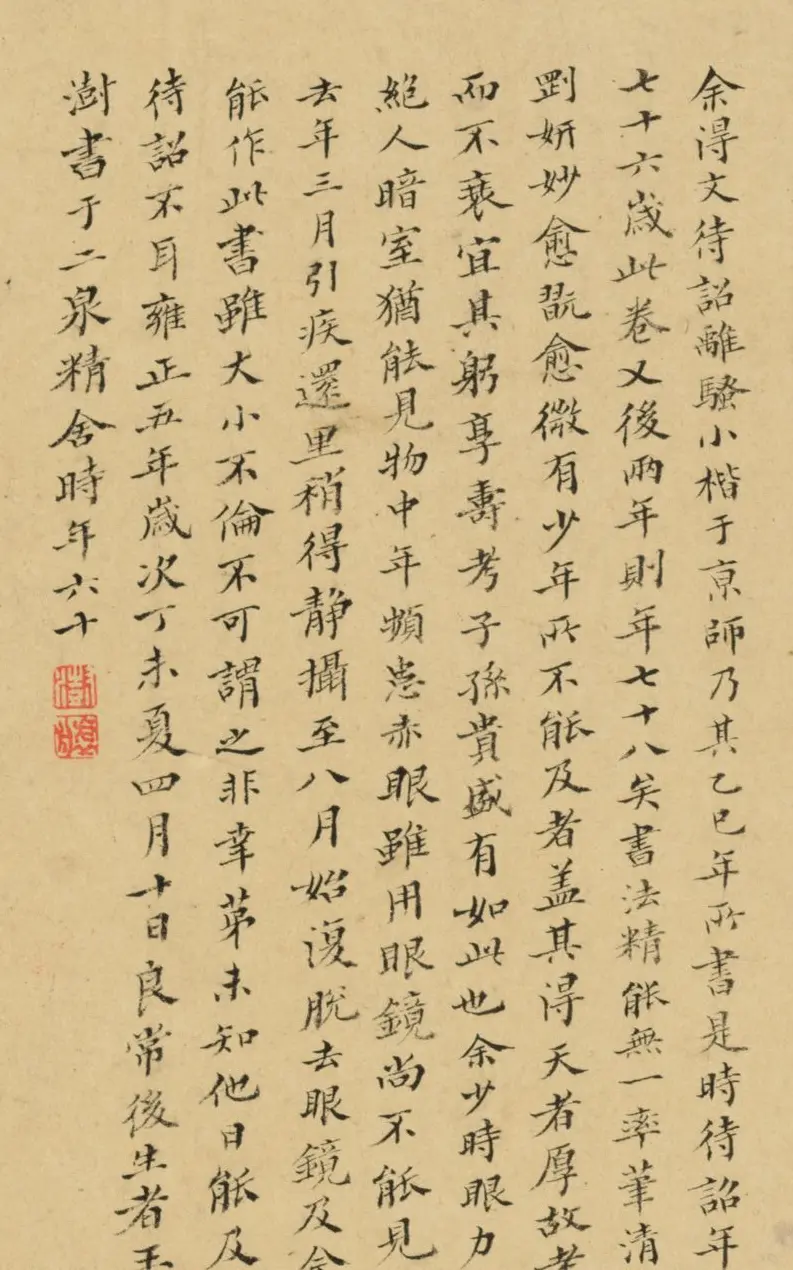 余得文待詔離騷小楷于京師乃其乙巳年所書是時待詔年
七十六歲此卷又後兩年則年七十八矣書法精能無一率筆清
劉妍妙愈翫愈微有少年所不能及者蓋其得天者厚故老
而不衰宜其躬享壽考子孫貴盛有如此也余少時眼力
絕人暗室猶能見物中年頻患赤眼雖用眼鏡尚不能見
去年三月引疾還里稍得静攝至八月始復脫去眼鏡及今
能作此書雖大小不倫不可謂之非幸苐未知他日能及
待詔不耳雍正五年歲次丁未夏四月十日良常後生者王
澍書于二泉精舍時年六十